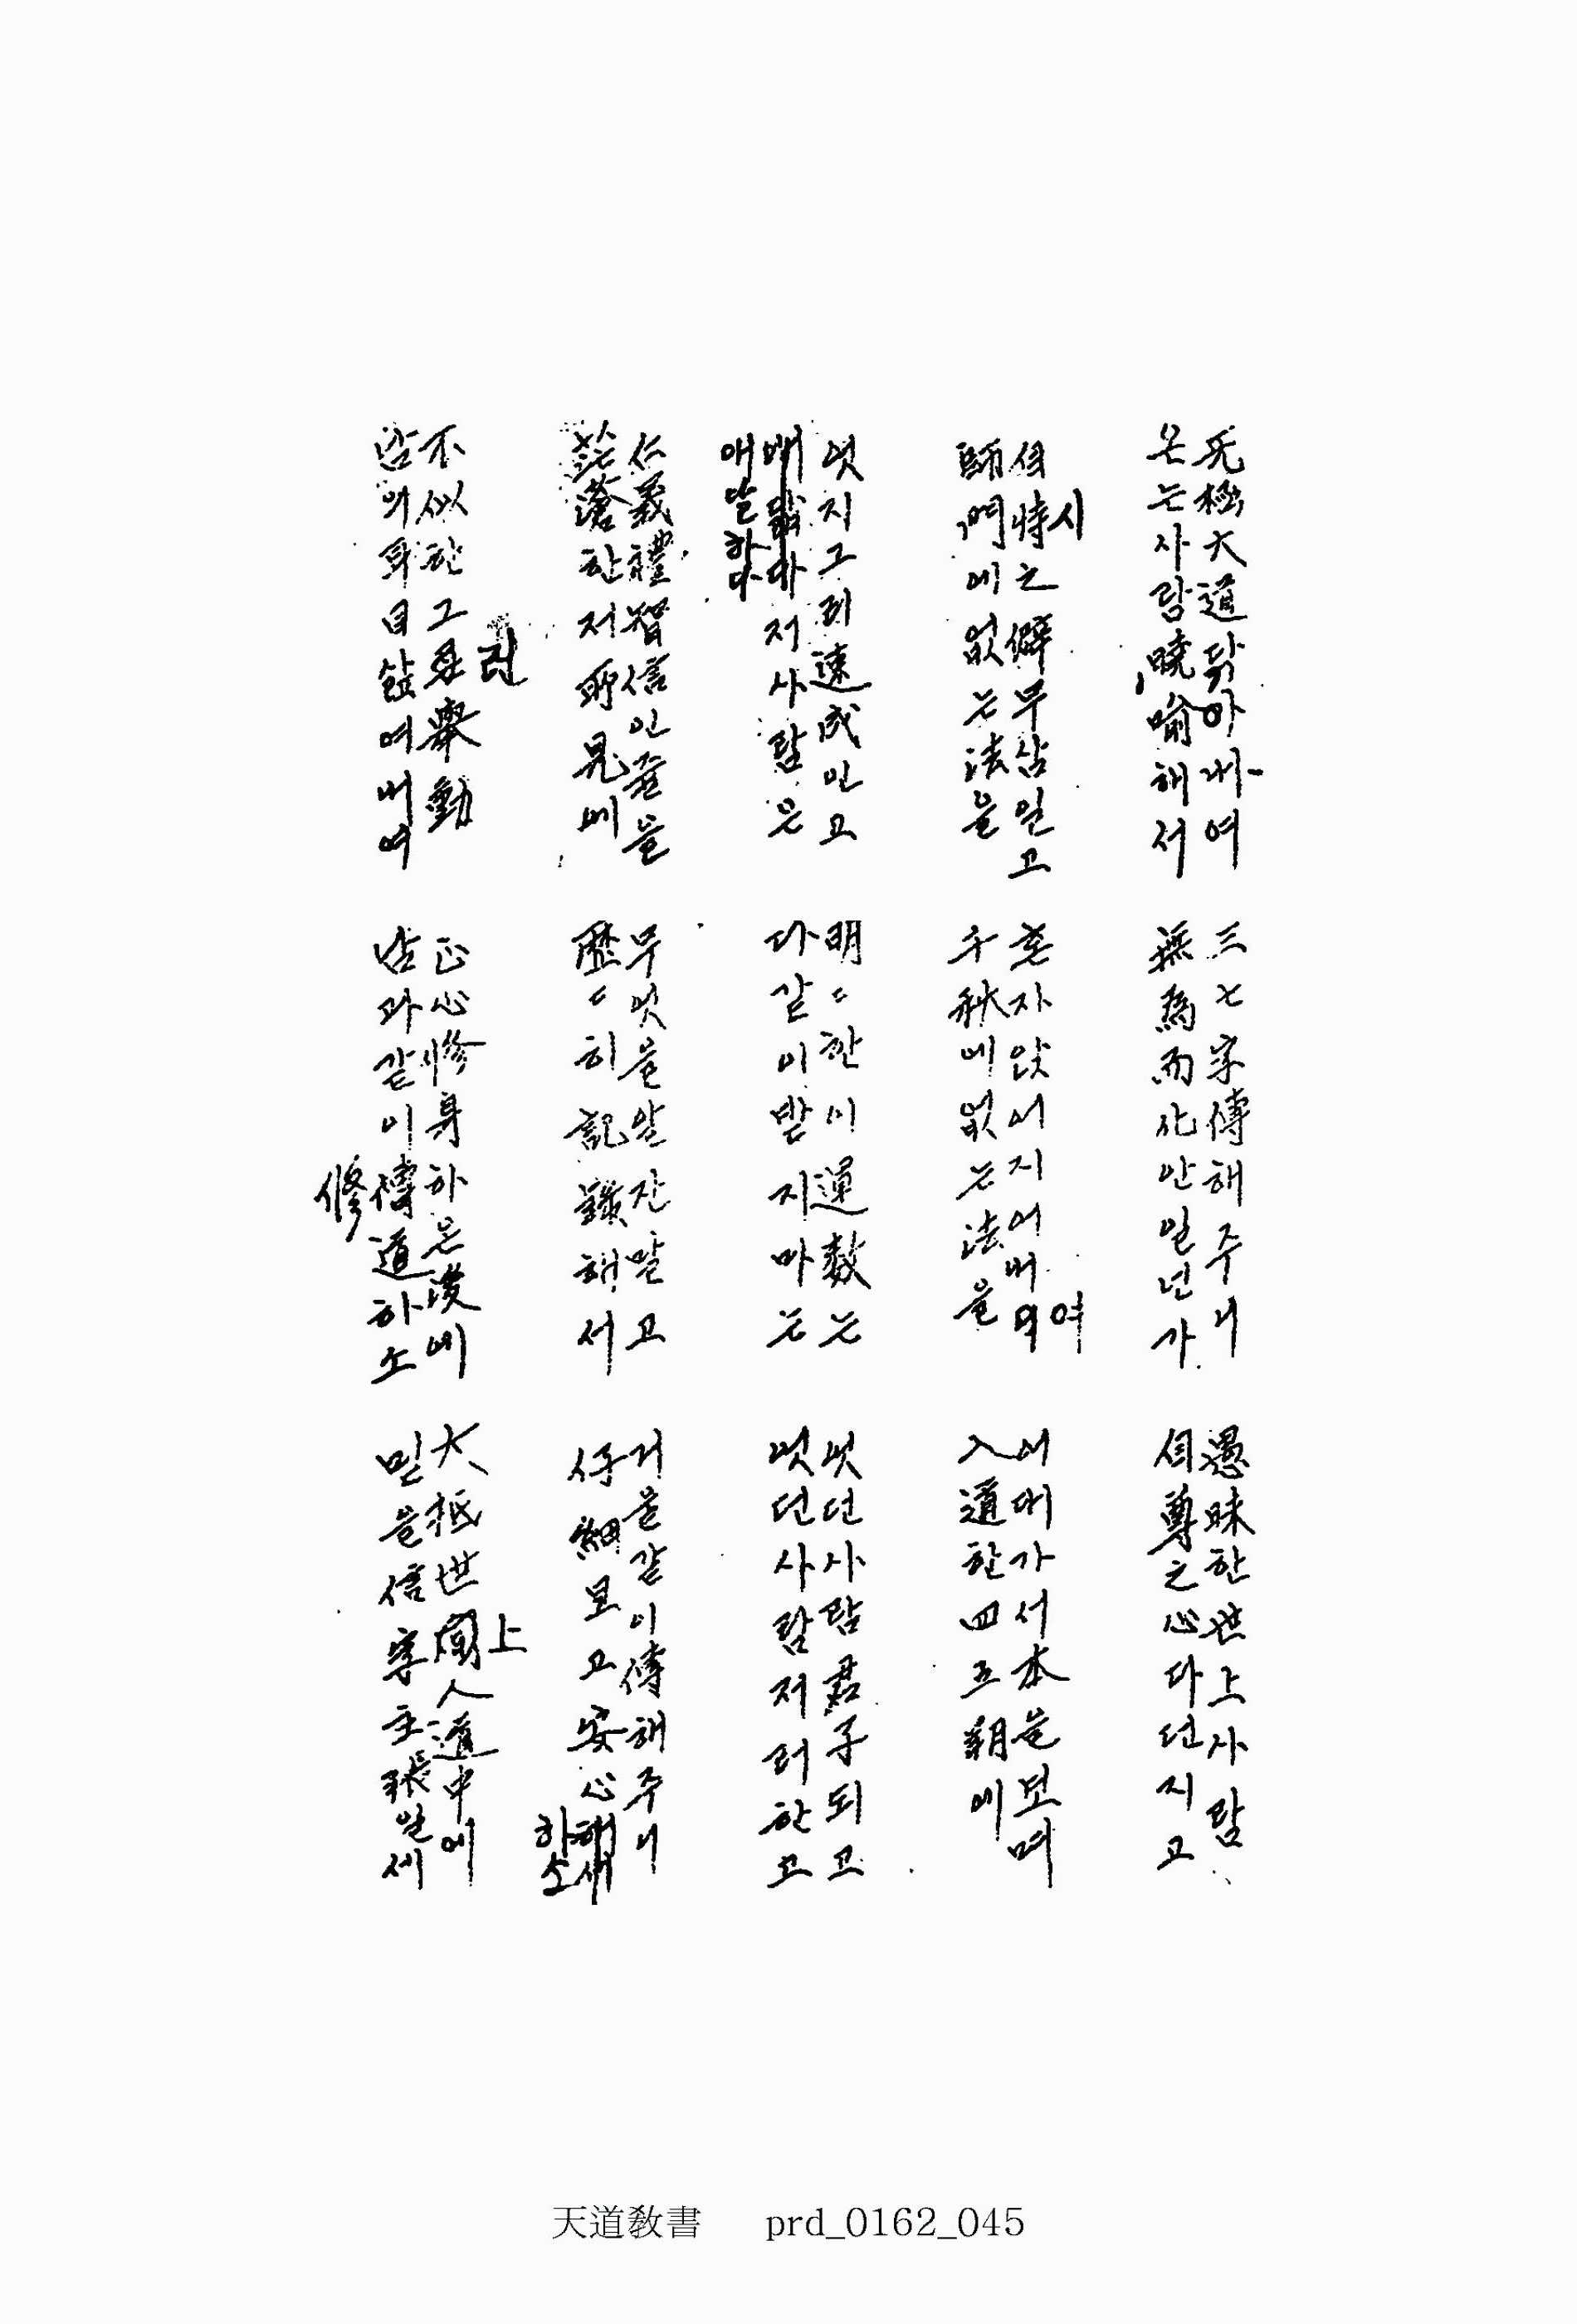 无極大道닦아내여
온는사람曉喻해서
三七字傳해주니
無爲而化안일넌가
愚昧한世上사람
自尊之心다던지고
自恃之僻무삼일고
시
師門에없는法을
혼자앉어지어내며
여
千秋에없는法을
어대가서本을보며
入道한四五朔에
엇지그리速成인고
저사람은
애달하다
明〻한이運數는
다같이밝지마는
엇던사람君子되고
엇던사람저러한고
仁義禮智信인줄을
茫滄한저所見에
무엇을알잔말고
歷〻히記錄해서
거울같이傳해주니
仔細보고安心해서
하소
不似한그擧動
런
남의耳目삶여내여
正心修身하온後에
남과같이傳道하소
修
大抵世間人道中에
上
믿을信字主張일세
天道敎書 prd_0162_045